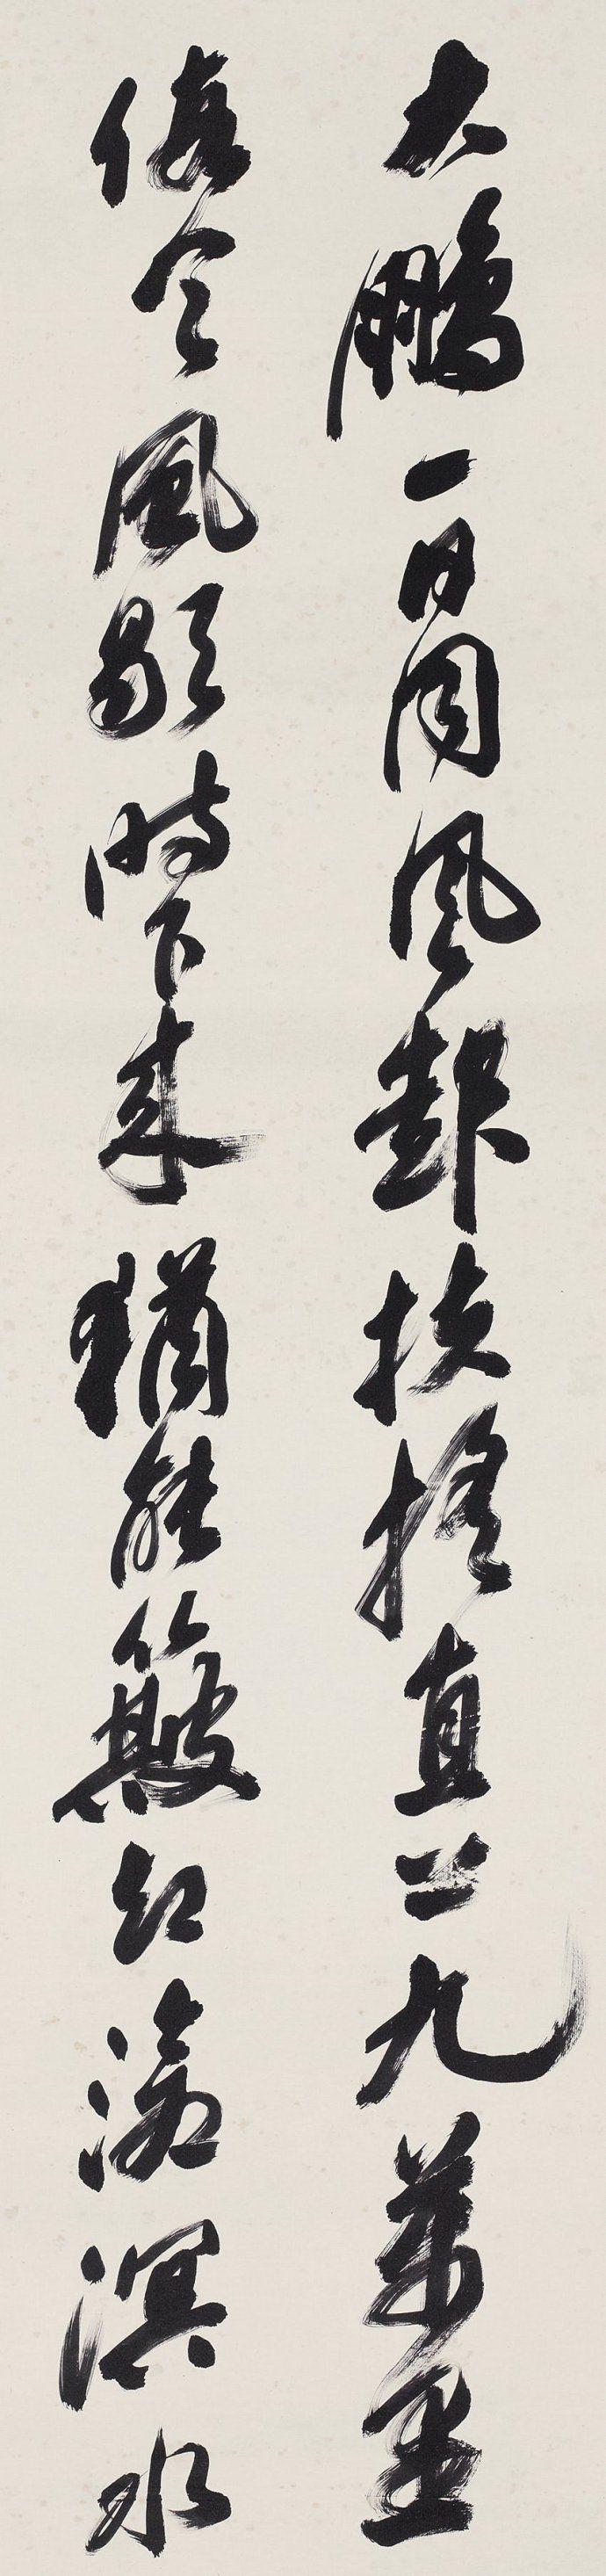 大鵬一日同風扶搖直上九萬里
假令風歇時下來猶能簸却滄溟水